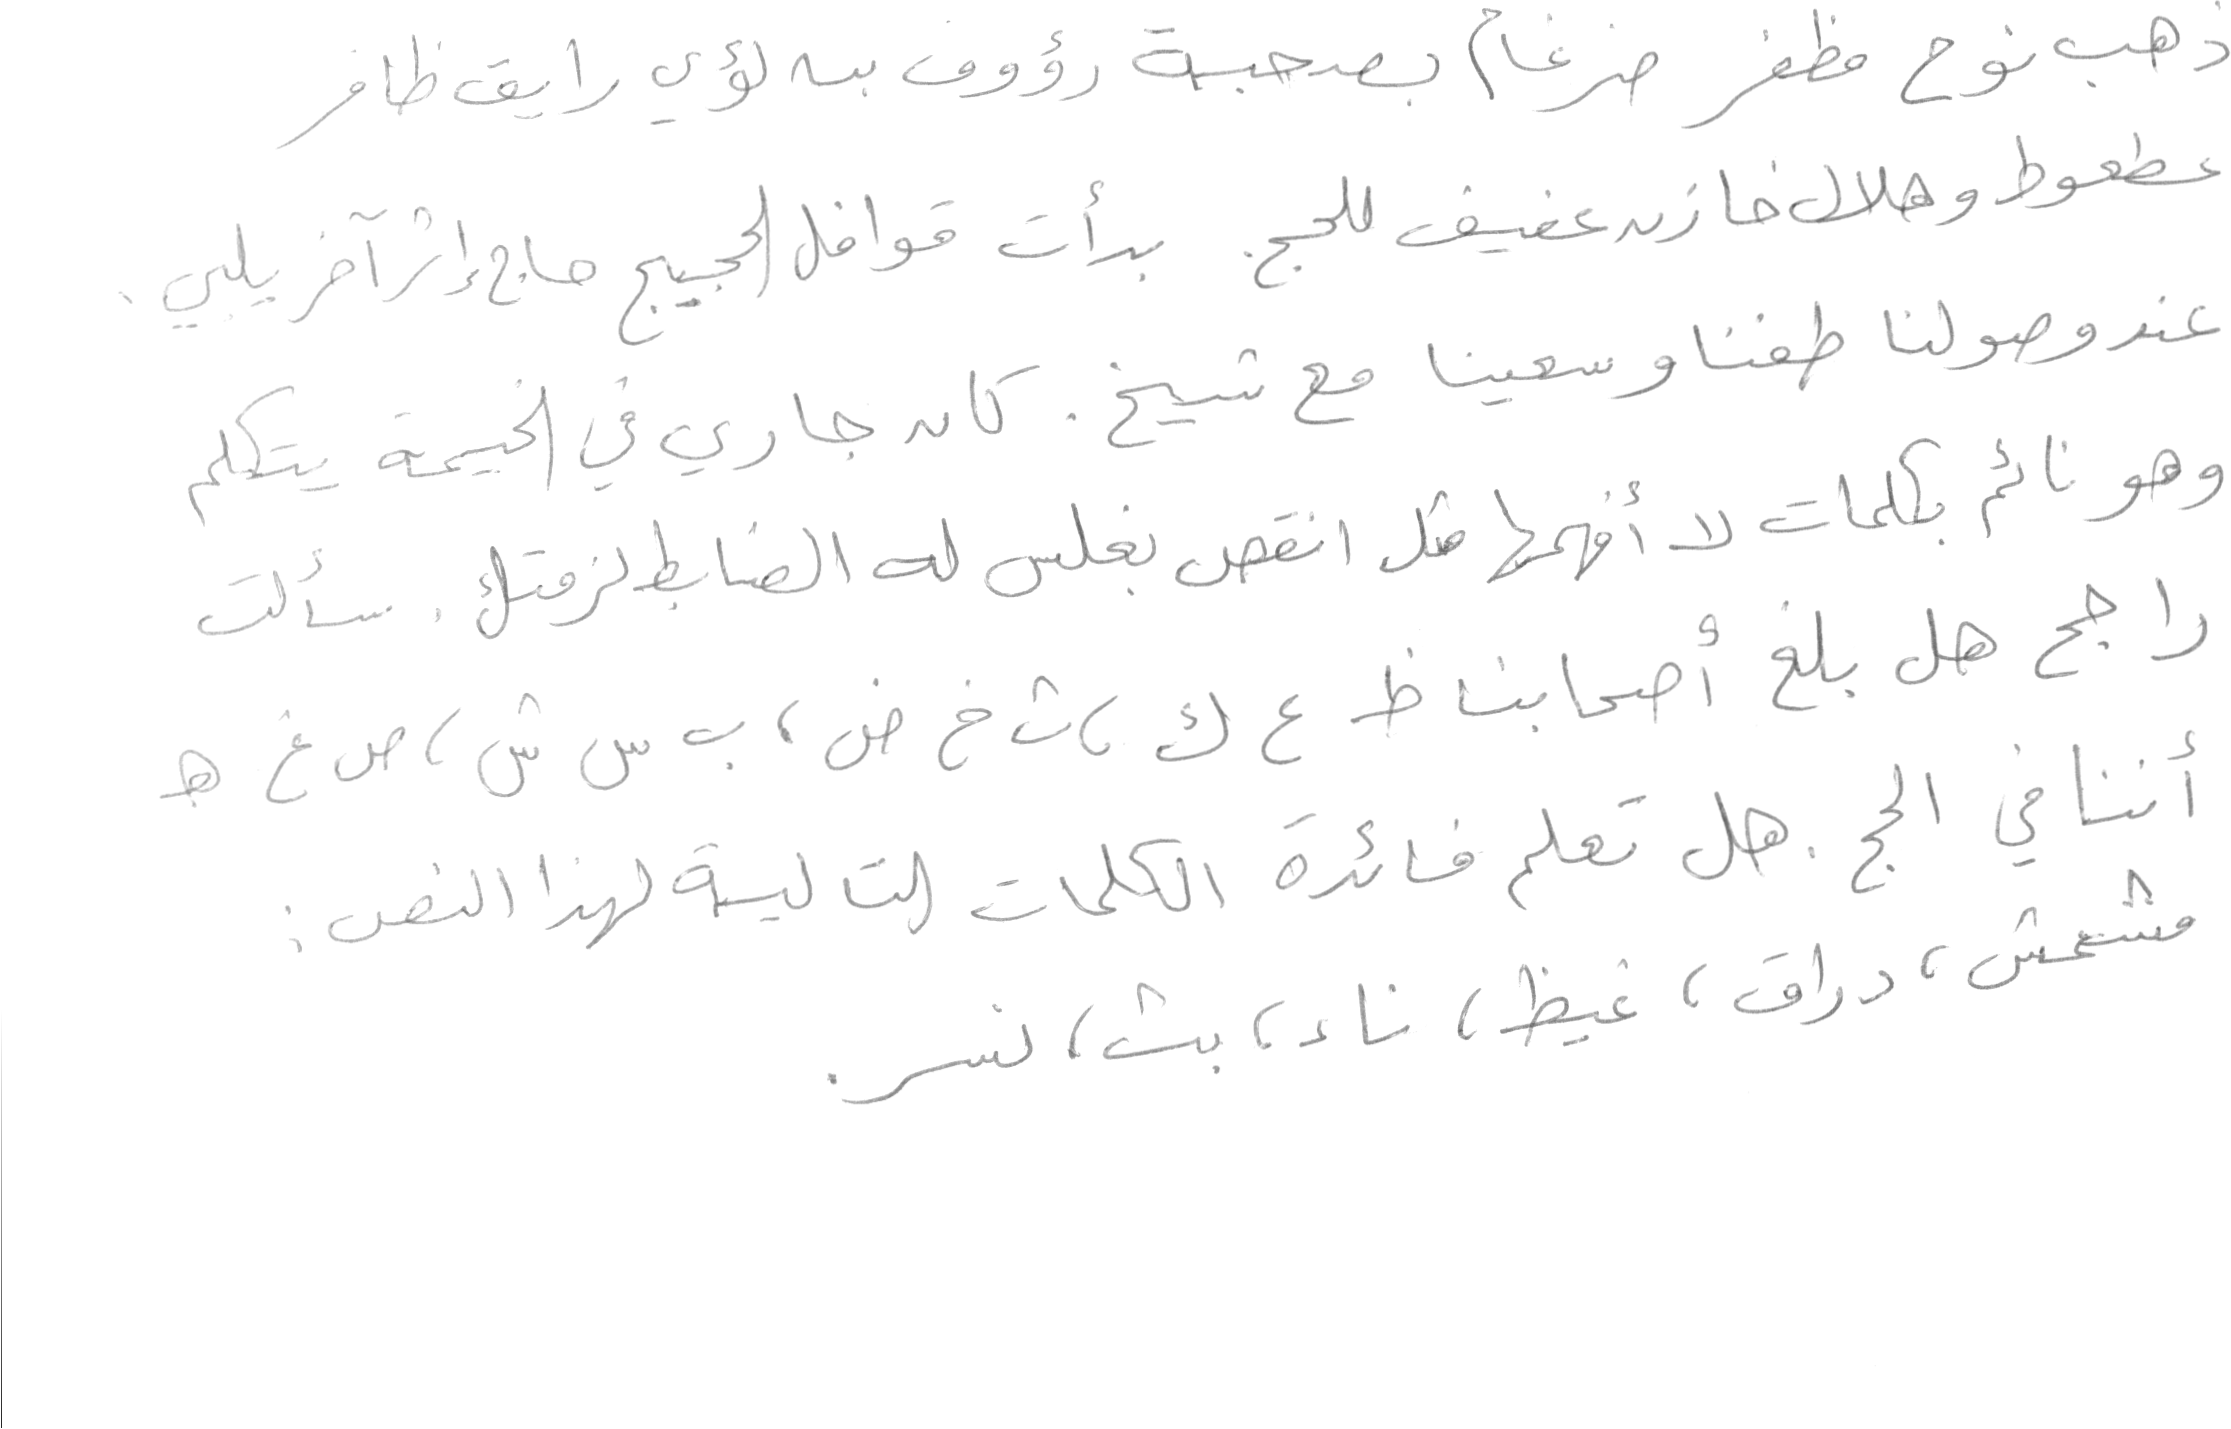 ذهب نوح مظفر ضرغام بصحبة رؤوف بن لؤي رايق ظافر
عطعوط وهلال خازن عفيف للحج. بدأت قوافل الحجيج حاج إثر آخر يلبي.
عند وصولنا طفنا وسعينا مع شيخ. كان جاري في الخيمة يتكلم
وهو نائم بكلمات لا أفهمها مثل انقص بغلس له الضابط لزقتك. سألت
راجح هل بلغ أصحابنا ظ ع ك، ث خ ض، ب س ش، ص غ هـ
أننا في الحج. هل تعلم فائدة الكلمات التالية لهذا النص:
مشمش، دراق، غيظ، ناء، بث، نسر.